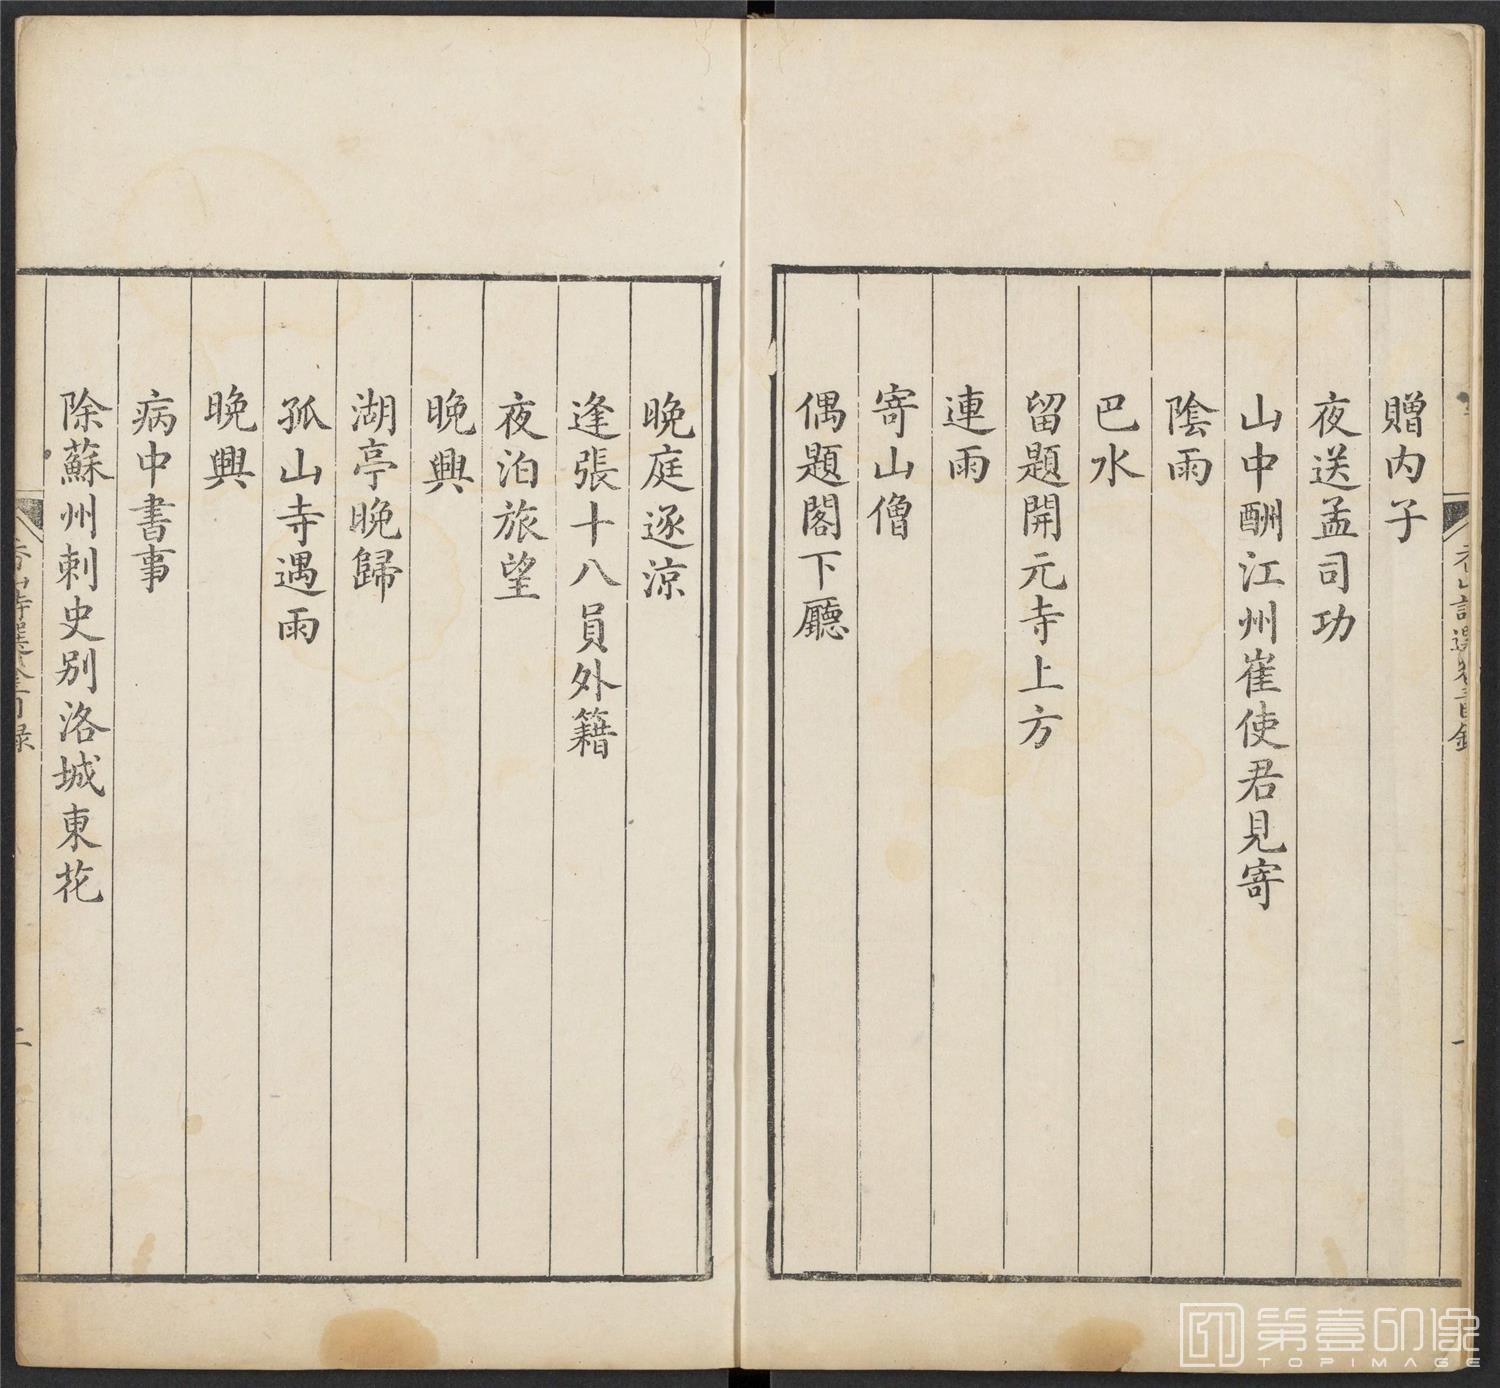 贈内子
夜送孟司功
山中酬江州崔使君見寄
陰雨
巴水
留題開元寺上方
連雨
寄山僧
偶題閣下廳
晚庭逐涼
逢張十八員外籍
夜泊旅望
晚興
湖亭晚歸
孤山寺遇雨
晚興
病中書事
除蘇州刺史别洛城東花
二
第壹印像
TOPIMAGE